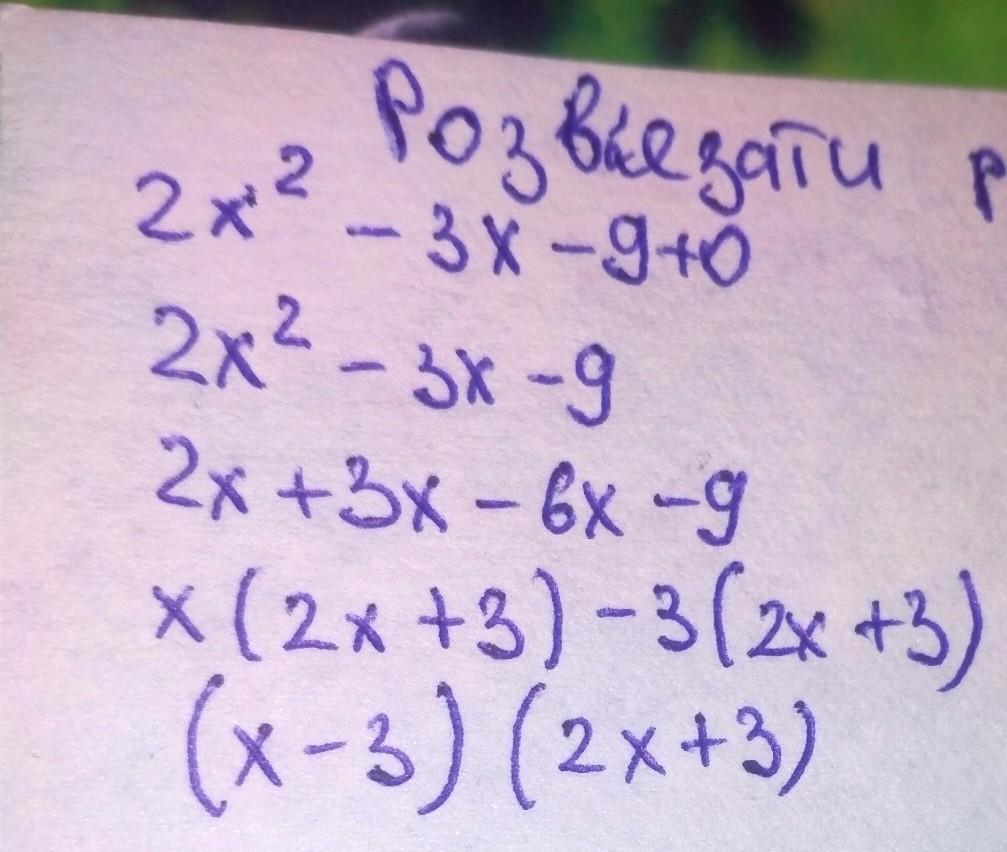 Розвьезати р
2x² - 3x - 9+0
2x² - 3x - 9
2x + 3x - 6x - 9
x(2x + 3) - 3(2x + 3)
(x - 3)(2x + 3)